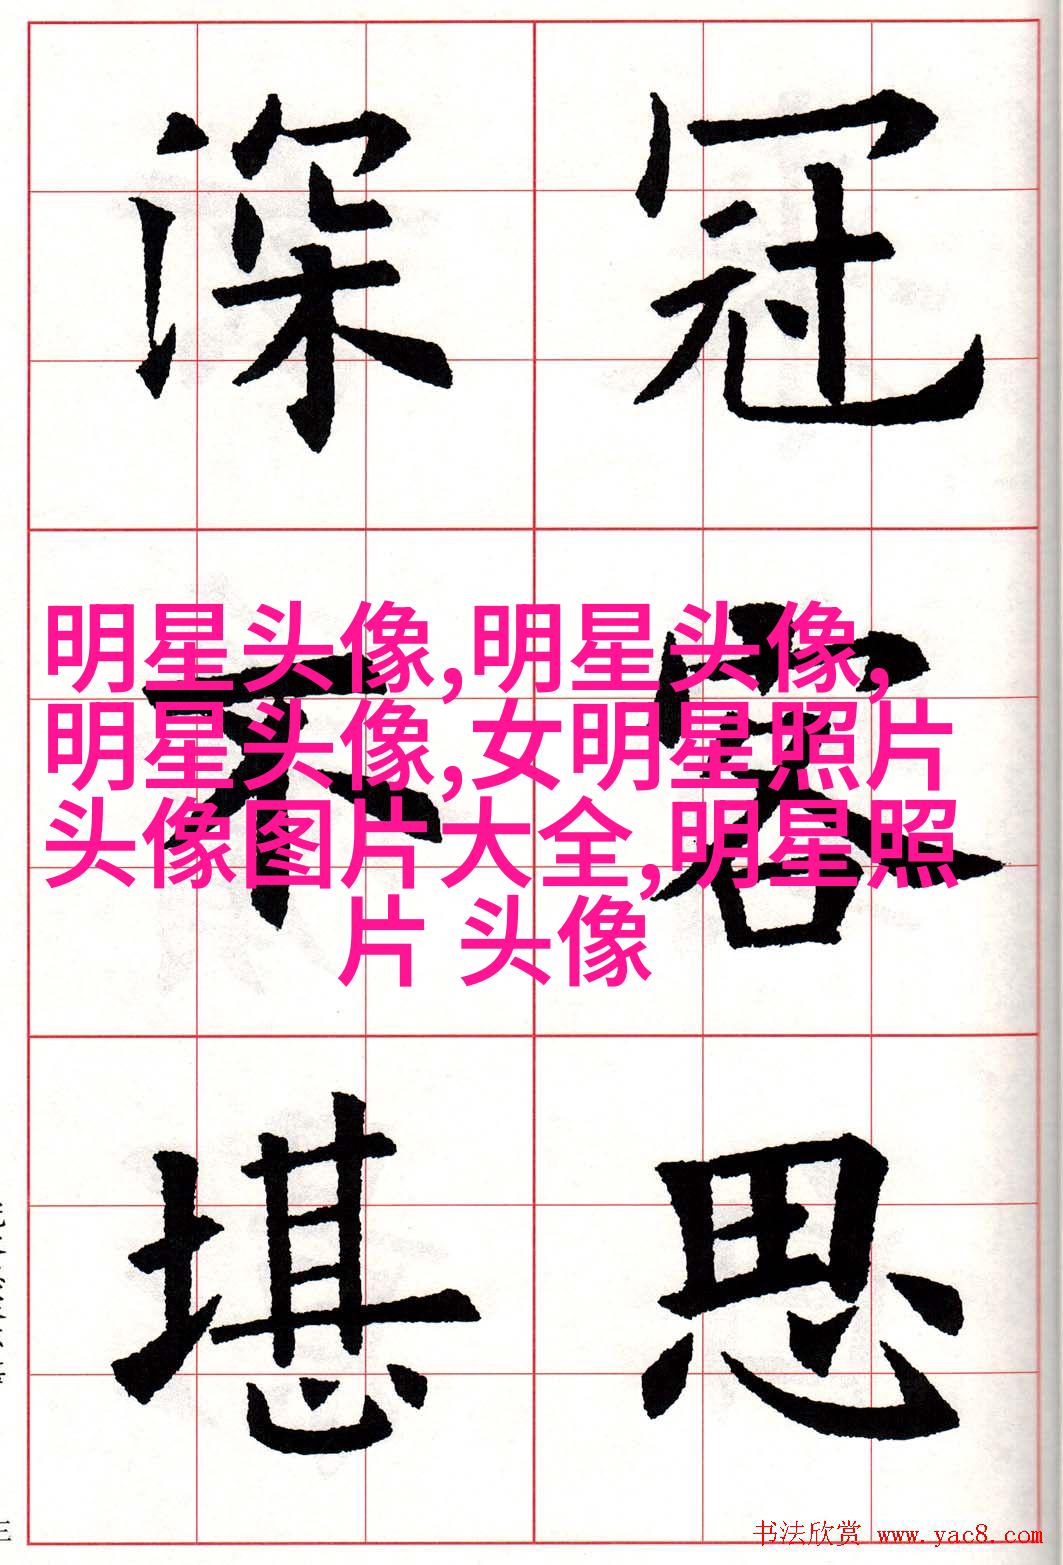 冠容思
深不堪
明星头像,明星头像,
明星头像,女明星照片
头像图片大全,明星照
片 头像
书法欣赏 www.yac8.com